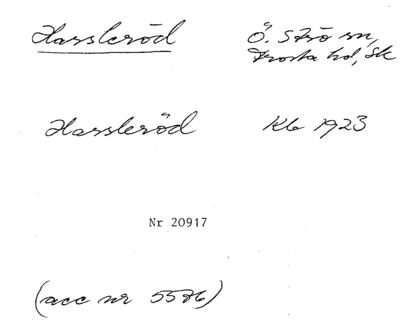 Hassleröd Ö. Strö sn,
Frosta hd, Sk
Hassleröd Kb 1923
Nr 20917
(acc nr 5576)